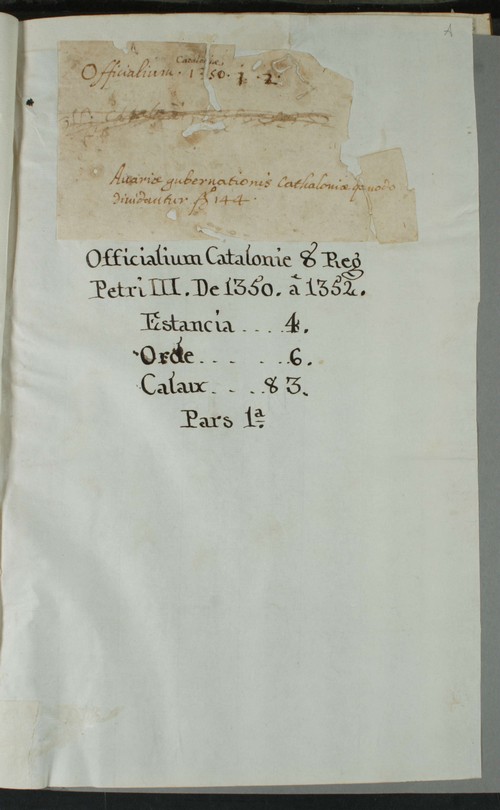 A
Cataloniæ
Officialium. 1350. 1. 2.
Avariæ gubernationis Cathaloniæ quando
dividantur fº 144.
Officialium Catalonie 8 Reg
Petri III. De 1350. â 1352.
Estancia .... 4.
Orde. . . . . .6.
Calaix. . . . .83.
Pars 1ª